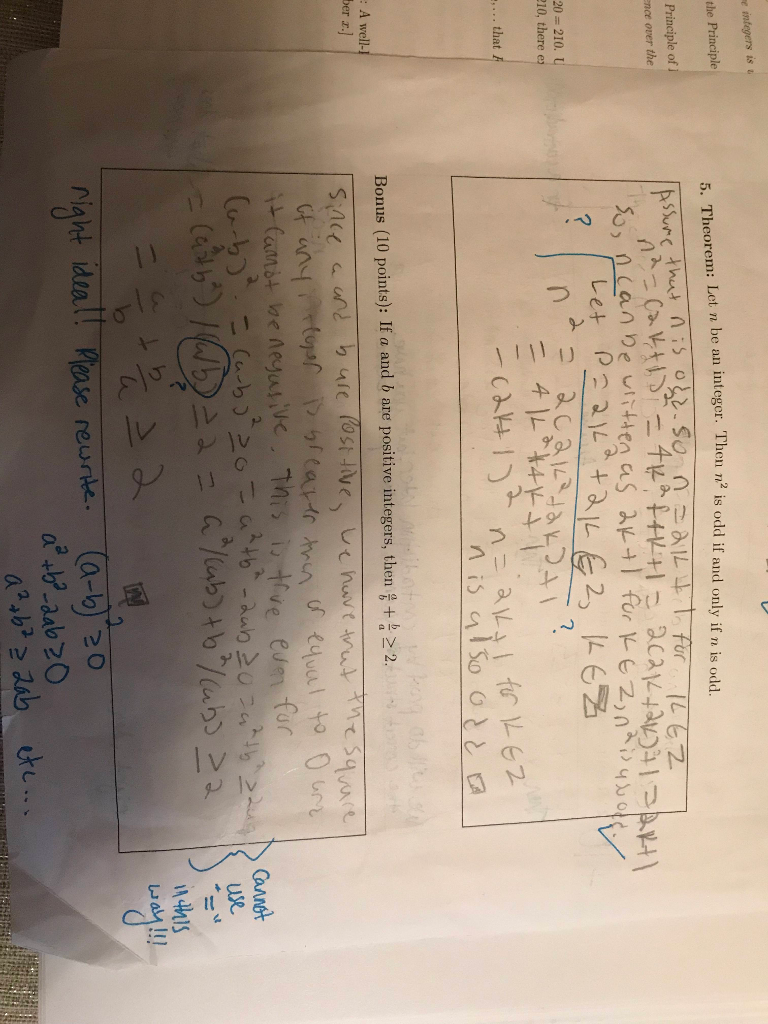 e integers is
the Principle
Principle of
nce over the
20 = 210. U
210, there e
, ... that
: A well-
ber x.]
5. Theorem: Let n be an integer. Then n² is odd if and only if n is odd.
Assume that n is odd. So n = 2k+1 for k ∈ Z
n² = (2k+1)² = 4k² + 4k+1 = 2(2k²+2k)+1 = 2k+1
So, n can be written as 2k+1 for k ∈ Z, n² is
? Let p = 2k²+2k ∈ Z, k ∈ Z
n² = 2(2k²+2k)+1 ?
= 4k²+4k+1
= (2k+1)² n = 2k+1 for k ∈ Z
n is also odd
Bonus (10 points): If a and b are positive integers, then a/b + b/a ≥ 2.
Since a and b are positive, we have that the square
of any integer is greater than or equal to 0 and
it cannot be negative. This is true even for
(a-b)² = (a-b)² ≥ 0 = a²+b²-2ab ≥ 0 = a²+b² ≥ 2ab
= (a²+b²)/(ab) ≥ 2 = a²/(ab) + b²/(ab) ≥ 2
?
= a/b + b/a ≥ 2
cannot
use
"="
in this
way!!!
right idea!! Please rewrite. (a-b)² ≥ 0
a²+b²-2ab ≥ 0
a²+b² ≥ 2ab etc...